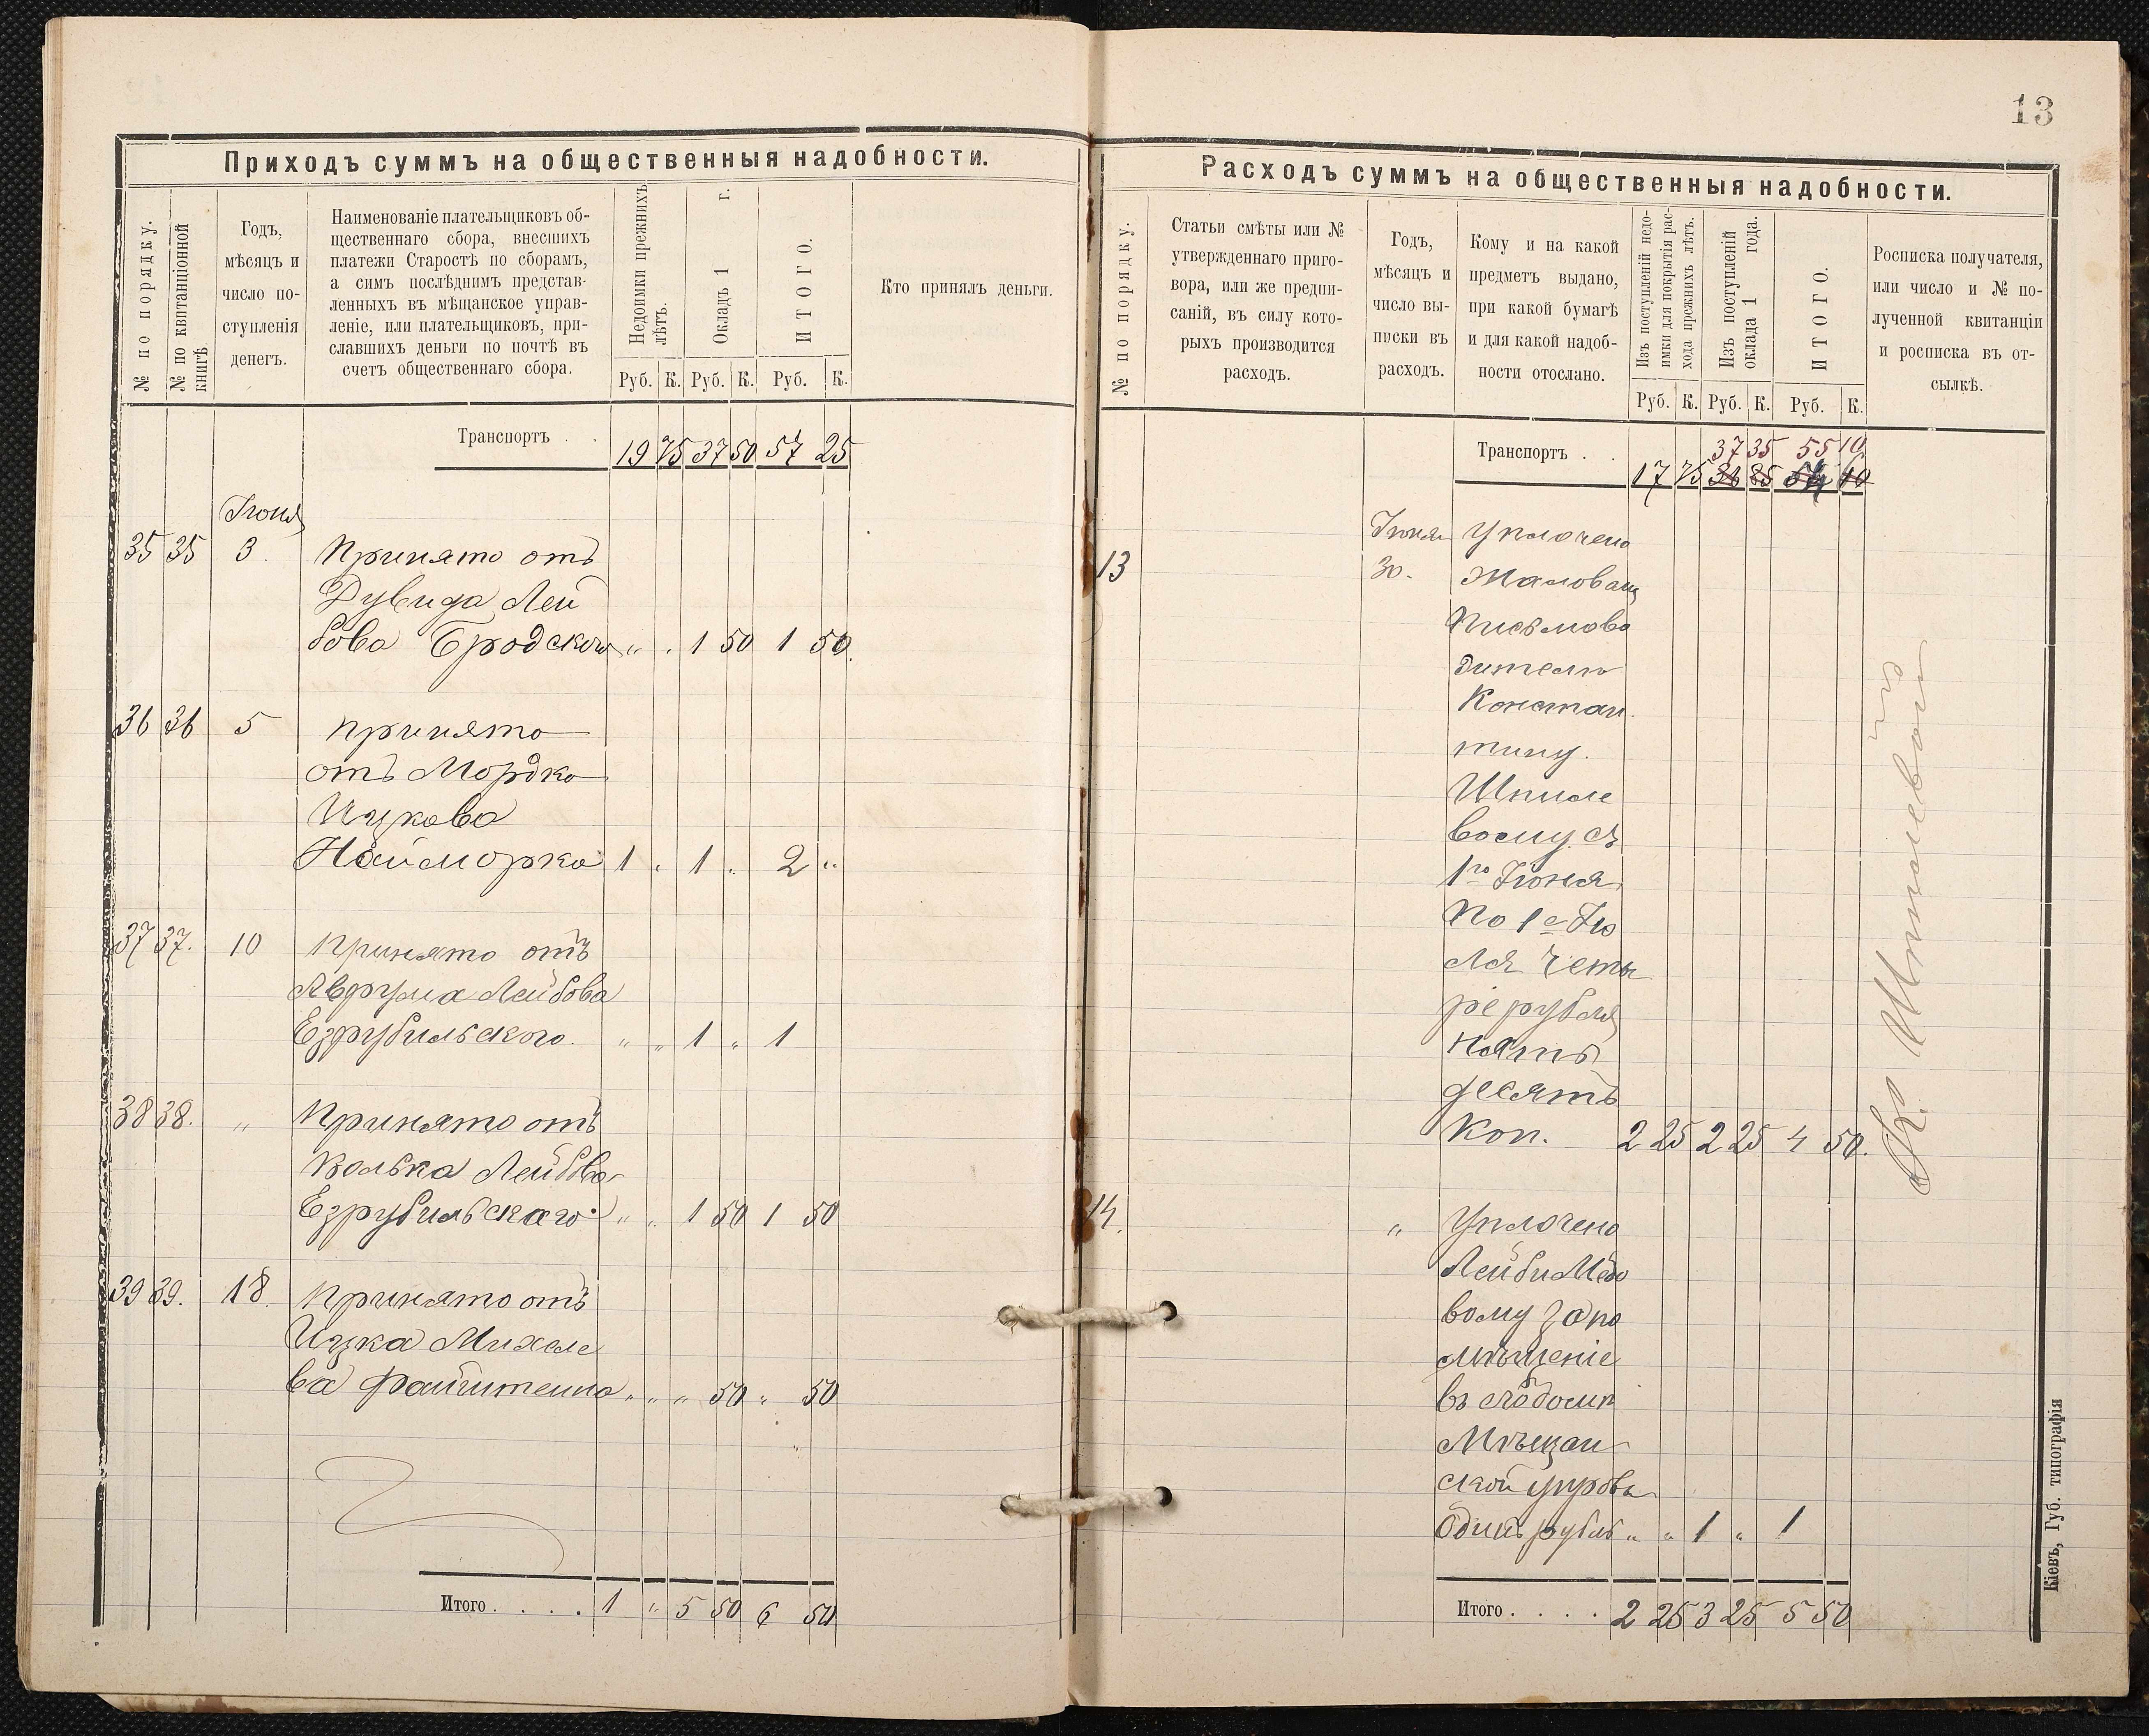 13
Приходъ суммъ на общественныя надобности.
№ по порядку.
№ по квитанціонной
книгѣ
Годъ,
мѣсяцъ и
число по-
ступленія
денегъ.
Наименованіе плательщиковъ об-
щественнаго сбора, внесшихъ
платежи Старостѣ по сборамъ,
а симъ послѣднимъ представ-
ленныхъ въ мѣщанское управ-
леніе, или плательщиковъ, при-
славшихъ деньги по почтѣ въ
счетъ общественнаго сбора.
Недоимки прежнихъ
лѣтъ.
Окладъ 1 г.
ИТОГО.
Кто принялъ деньги.
Руб. К. Руб. К. Руб. К.
Транспортъ . . 19 75 37 50 57 25
Іюня
35 35 3. Принято отъ
Дувида Лей
бова Бродского „ . 1 50 1 50.
36 36 5 Принято
отъ Мордко
Ицкова
Найморко 1 „ 1 „ 2 „
37 37. 10 Принято отъ
Аврума Лейбова
Езрубильского. „ „ 1 „ 1
38 38. „ Принято отъ
Волька Лейбова
Езрубильскаго „ „ 1 50 1 50
39 39. 18. Принято отъ
Ицка Михеле
ва „ „ „ 50 „ 50
Итого . . . . 1 „ 5 50 6 50
Расходъ суммъ на общественныя надобности.
№ по порядку.
Статьи смѣты или №
утвержденнаго приго-
вора, или же предпи-
саній, въ силу кото-
рыхъ производится
расходъ.
Годъ,
мѣсяцъ и
число вы-
писки въ
расходъ.
Кому и на какой
предметъ выдано,
при какой бумагѣ
и для какой надоб-
ности отослано.
Изъ поступленій недо-
имки для покрытія рас-
хода прежнихъ лѣтъ.
Изъ поступленій
оклада 1 года.
ИТОГО.
Росписка получателя,
или число и № по-
лученной квитанціи
и росписка въ от-
сылкѣ.
Руб. К. Руб. К. Руб. К.
37 35 55 10.
Транспортъ . . 17 75 36 85 54 60
Іюня Уплочено
13 30. Жалован
Письмово
дителю
Констан
тину.
Шпиле
вому съ
1го Іюня
по 1е Ію
ля Четы
ре рубля
пять
десятъ
Коп. 2 25 2 25 4 50.
К. Шпилевой
14. „ Уплочено
Лейби Медо
вому за по
мѣщеніе
въ
Мѣщан
ской управы
Одинъ рубль „ „ 1 „ 1
Итого . . . . 2 25 3 25 5 50
Кіевъ, Губ. типографія